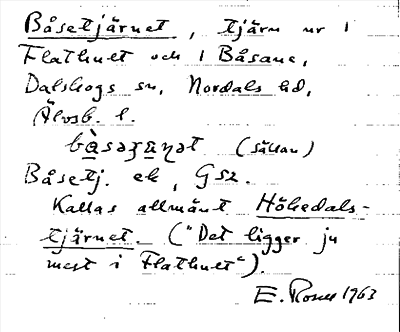 Båsetjärnet, tjärn nr 1
Flathult och 1 Båsane,
Dalskogs sn, Nordals hd,
Älvsb. l.
(sällan)
Båsetj. ek, GS2.
Kallas allmänt Höhedals-
tjärnet. ("Det ligger ju
mest i Flathult").
E. Rosell 1963